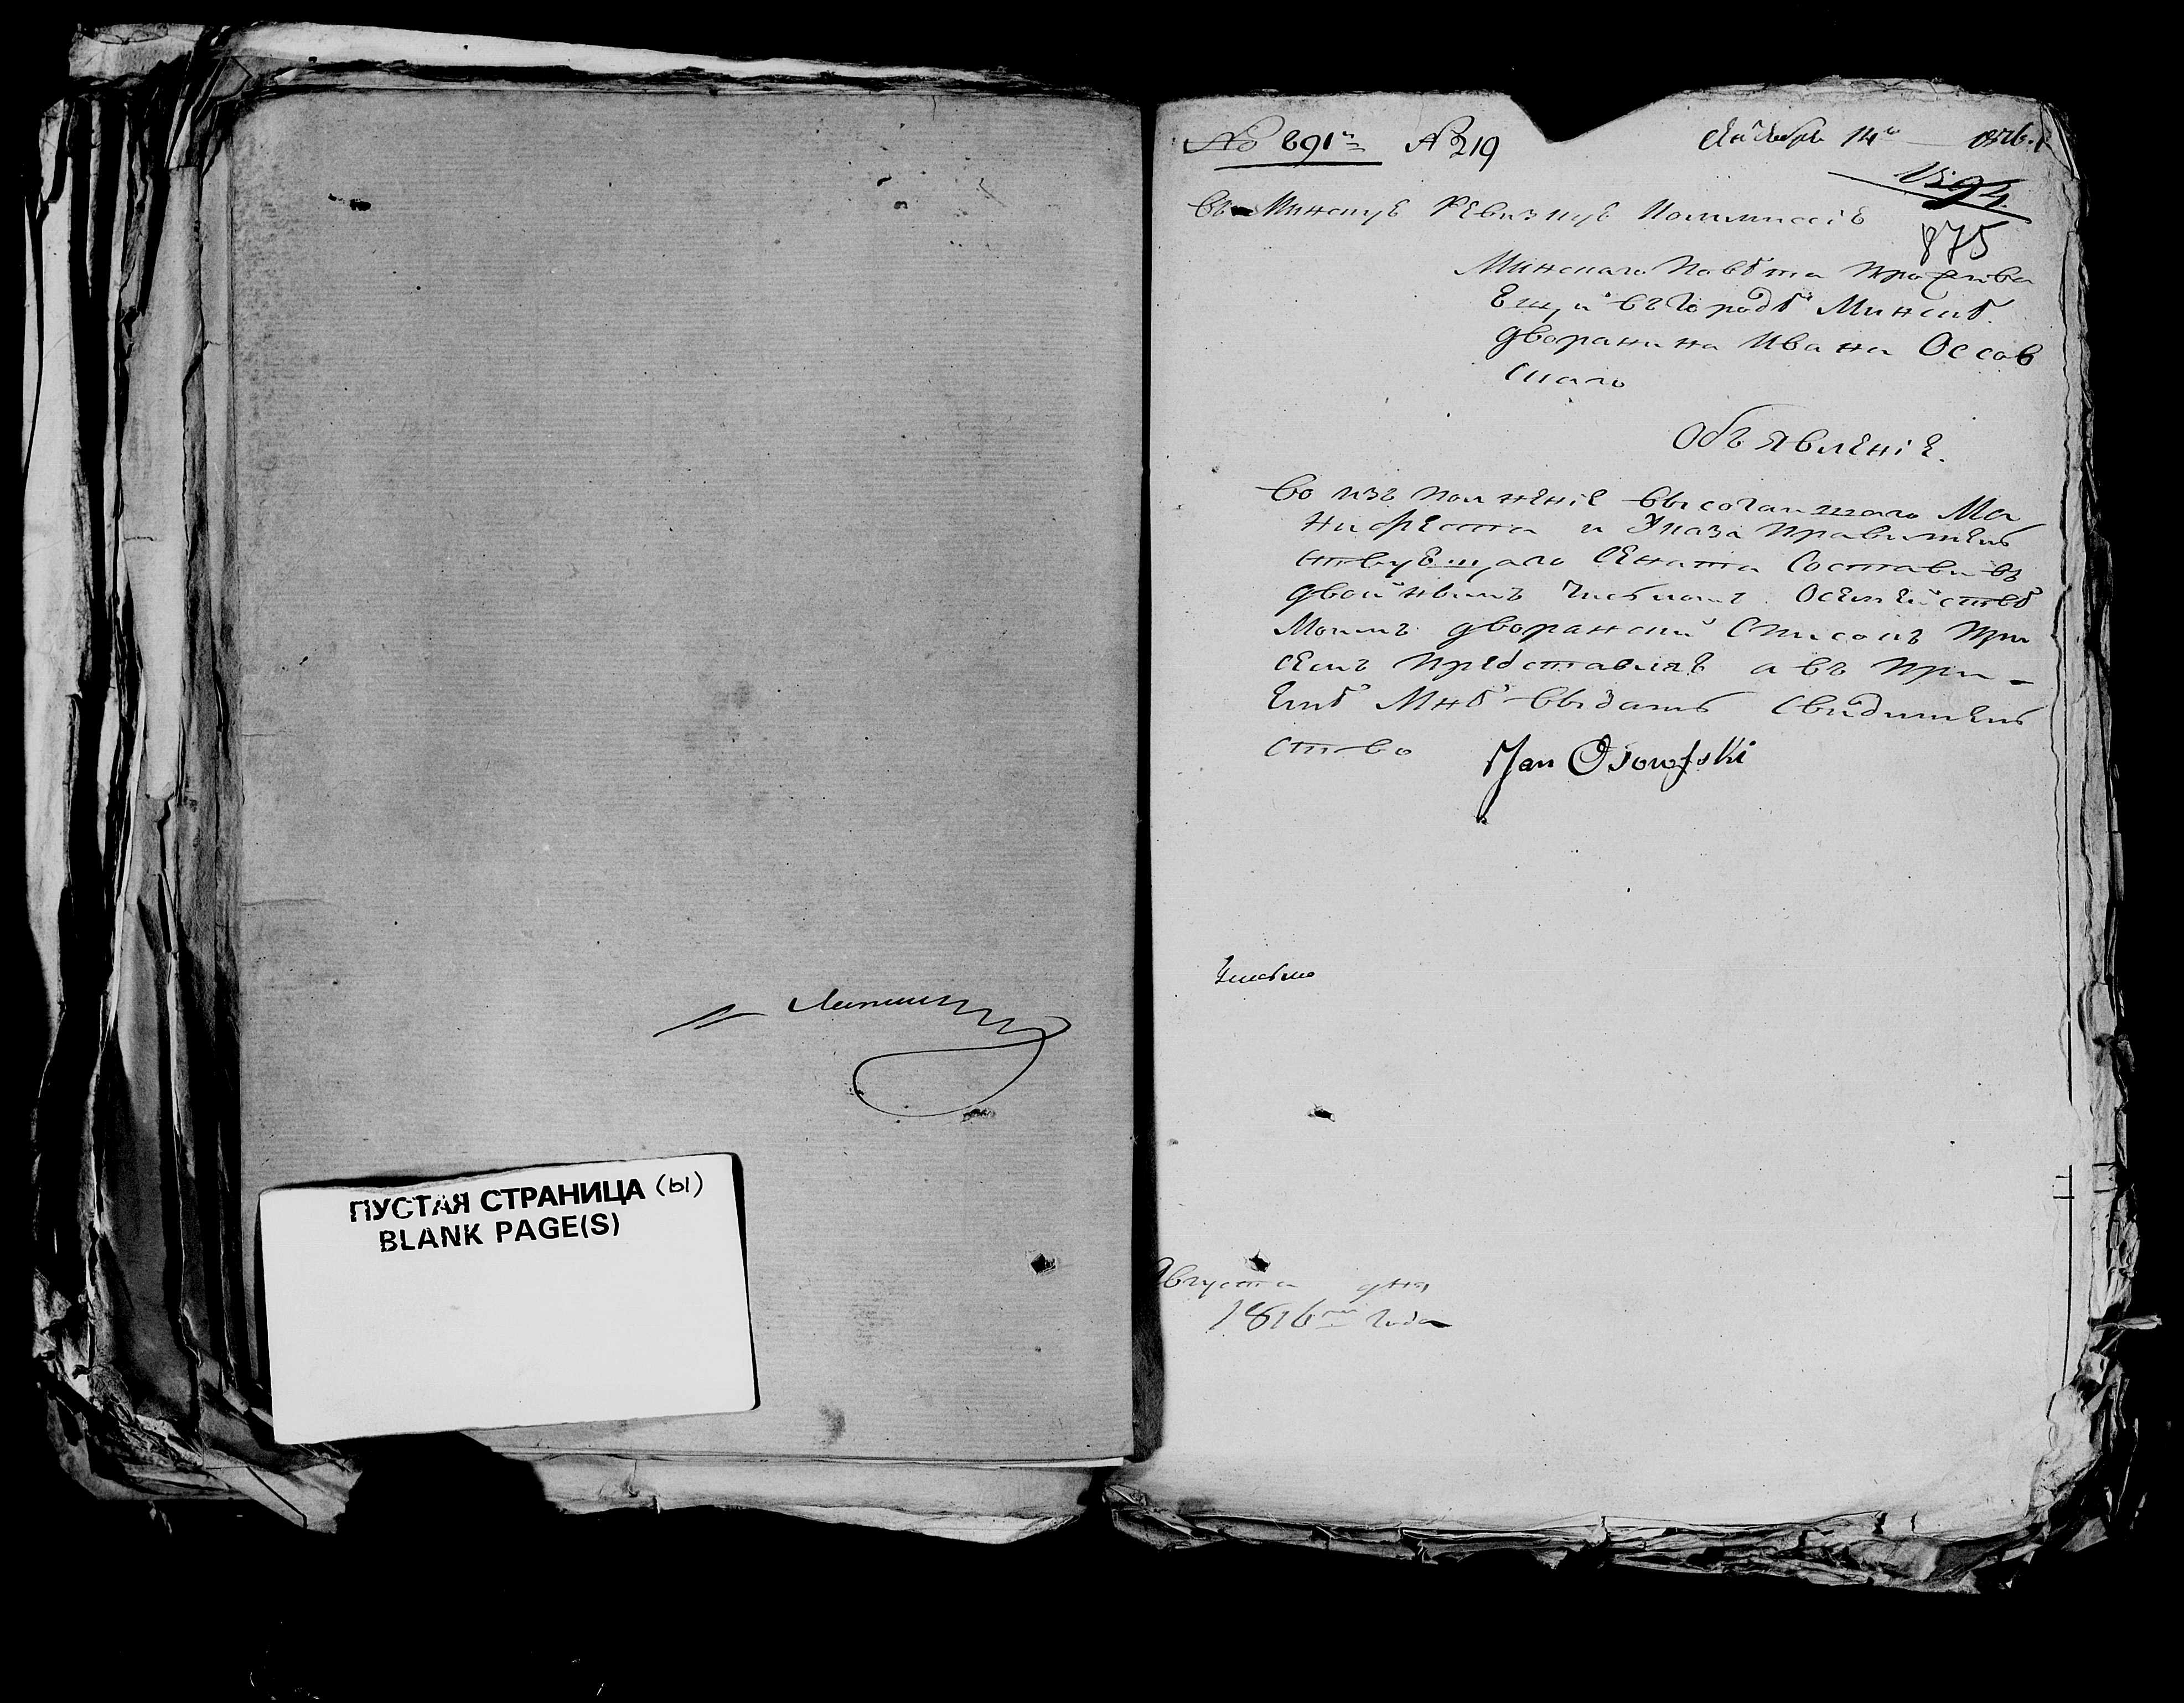 ПУСТАЯ СТРАНИЦА (ы)
BLANK PAGE(S)
№ 891 № 219
14 1816
1594
875
Въ Минскуе Ревизкуе Коммиссіе
Минскаго Повѣта прожива
ещи въ городѣ Минскѣ
дворанина Ивана Оссов
скаго
Объявленіе.
Во изполненіе высочайшаго Ма
нифеста и Указа правитель
ствуещаго Сената Составивъ
двойнымъ о семействѣ
Моимъ дворанский Списокъ при
семъ представляе а въ при-
емѣ Мнѣ выдать Свидитель
ство
Jan Osowski
Августа дня
1816 года